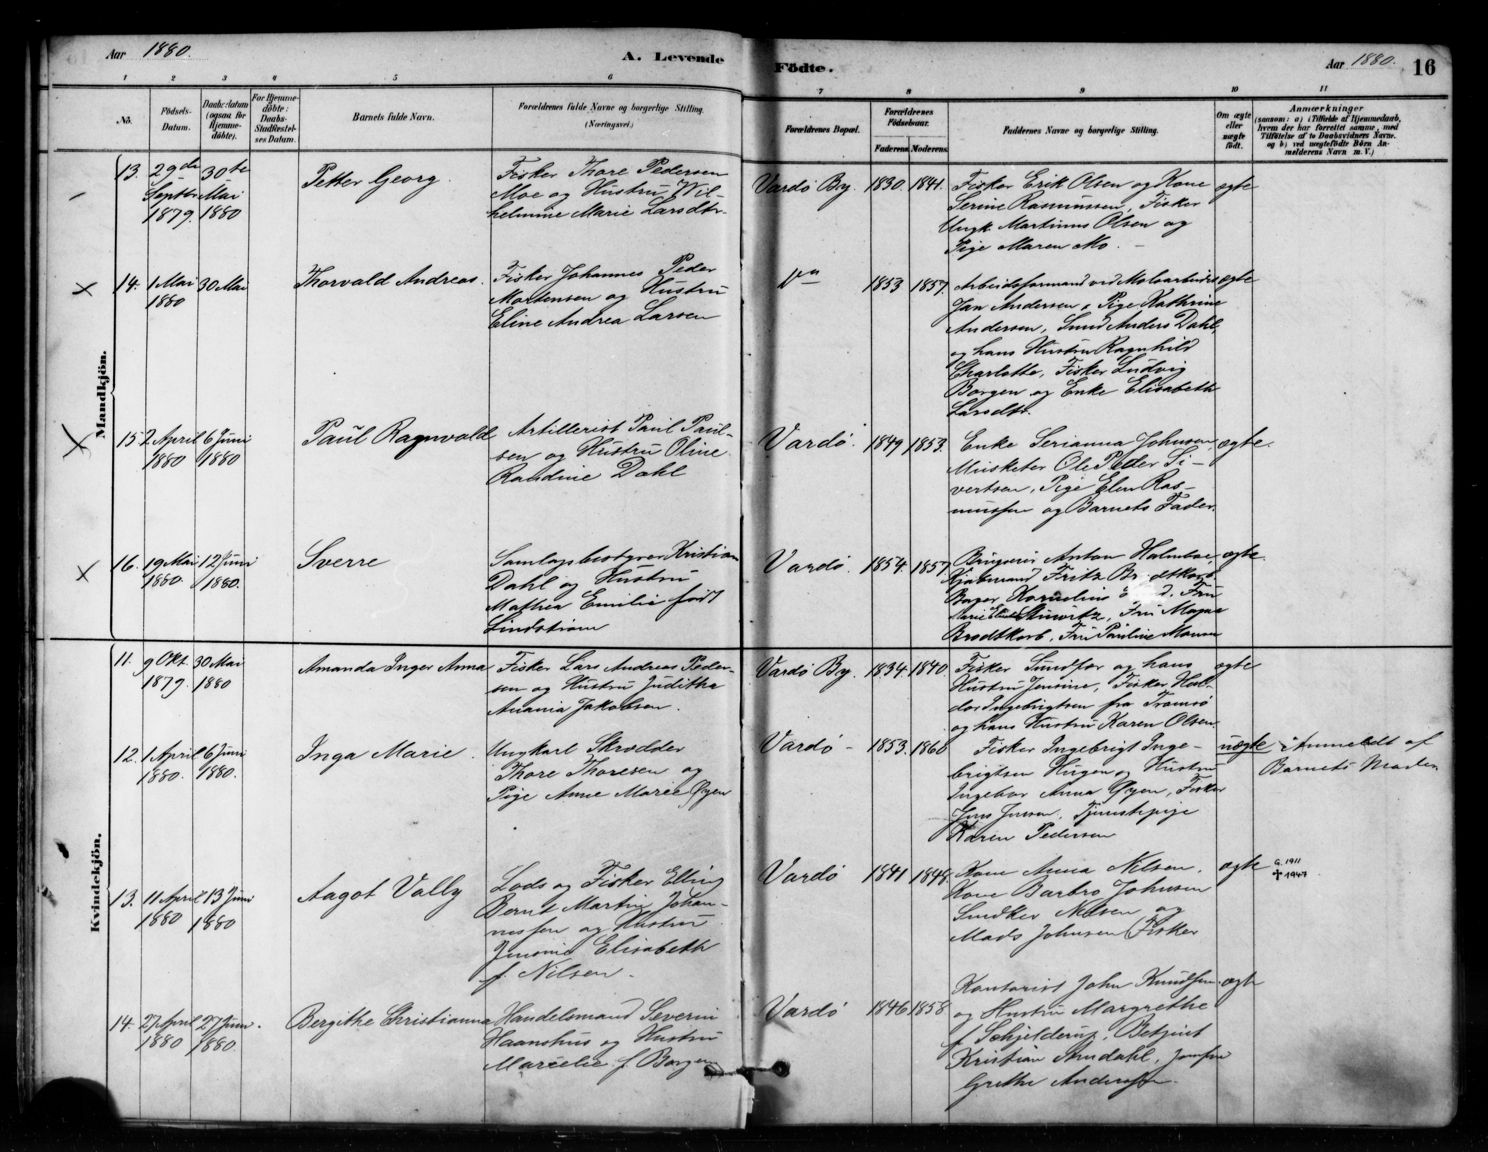 Aar 1880.
A. Levende Födte.
Aar 1880.
16
1 2 3 4 5 6 7 8 9 10 11
No.
Födsels-
Datum.
Daabs-Datum
(ogsaa for
Hjemme-
döbte).
For Hjemme-
döbte:
Daabs-
Stadfæstel-
ses Datum.
Barnets fulde Navn.
Forældrenes fulde Navne og borgerlige Stilling.
(Næringsvei.)
Forældrenes Bopæl.
Forældrenes
Födselsaar.
Faderens. Moderens.
Faddernes Navne og borgerlige Stilling.
Om ægte
eller
uægte
födt.
Anmærkninger
(saasom: a) (Tilfælde af Hjemmedaab,
hvem der har forrettet samme, med
Tilföielse af to Daabsvidners Navne.
og b) ved uægtefödte Börn An-
melderens Navn m. V.)
Mandkjön.
13.
29de
Septbr
1879.
30te
Mai
1880
Petter Georg.
Fisker Thore Pedersen
Moe og Hustru Wil-
helmine Marie Larsdtr.
Vardö By.
1830.
1841.
Fisker Erik Olsen og Kone
Serine Rasmussen, Fisker
Ungk. Martinus Olsen og
Pige Maren Mo.
ægte
14.
1 Mai
1880
30 Mai
Thorvald Andreas.
Fisker Johannes Peder
Mortensen og Hustru
Eline Andrea Larsen
1853
1857.
Arbeidsformand ved Moloarbeidet
Jan Andersen, Pige Kathrine
Andersen, Smed Anders Dahl,
og hans Hustru Ragnhild
Charlotte, Fisker Ludvig
Borgen og Enke Elisabeth
Larsdtr.
ægte
15.
2 April
1880
6 Juni
1880
Paul Ragnvald
Artillerist Paul Paul-
sen og Hustru Oline
Randine Dahl
Vardö.
1849
1853.
Enke Serianna Johnsen,
Musketer Ole Peder Si-
vertsen, Pige Elen Ras-
mussen og Barnets Fader.
ægte.
16.
19 Mai
1880.
12 Juni
1880.
Sverre
Samlagsbestyrer Kristian
Dahl og Hustru
Mathea Emilie född
Lindström
Vardö.
1854.
1857.
Anton Holmboe,
Kjöbmand Fritz Brodtkorb.
Bager Kornelius
Fru
Marie
Fru Magna
Brodtkorb, Fru Pauline
ægte.
Kvindekjön.
11.
9 Okt.
1879.
30 Mai
1880
Amanda Inger Anna
Fisker Lars Andreas Peder-
sen og Hustru Juditha
Anania Jakobsen.
Vardö By.
1834.
1840.
Fisker Sundfær og hans
Hustru Jensine, Fisker Hal-
dor Ingebrigtsen fra Tromsö
og hans Hustru Karen Olsen
ægte
12.
1 April
1880.
6 Juni
1880.
Inga Marie.
Ungkarl Skrædder
Thore Thoresen og
Pige Anne Marie Öyen
Vardö
1853.
1860
Fisker Ingebrigt Inge-
brigtsen Haugen og Hustru
Ingebor Anna Öyen, Fisker
Jens Jensen, Tjenestepige
Karen Pedersen
uægte
Anmeldt af
Barnets Moder
13.
11 April
1880
13 Juni
1880
Aagot Vally
Lods og Fisker Elling
Bernt Martin Johan-
nessen og Hustru
Jensine Elisabeth
f. Nilsen.
Vardö
1841
1848.
Kone Anna Nilsen,
Kone Barbro Johnsen
Snedker Nilsen og
Mads Johnsen (Fisker
ægte
G. 1911
✝ 1947
14.
27 April
1880
27 Juni.
1880.
Bergithe Christianna
Handelsmand Severin
Haanshus og Hustru
Marcelie f. Borgen
Vardö
1846
1858.
Kontorist John Knudsen
og Hustru Margrethe
f. Schjelderup, Betjent
Kristian Arndahl, Jomfru
Grethe Anderssen.
ægte